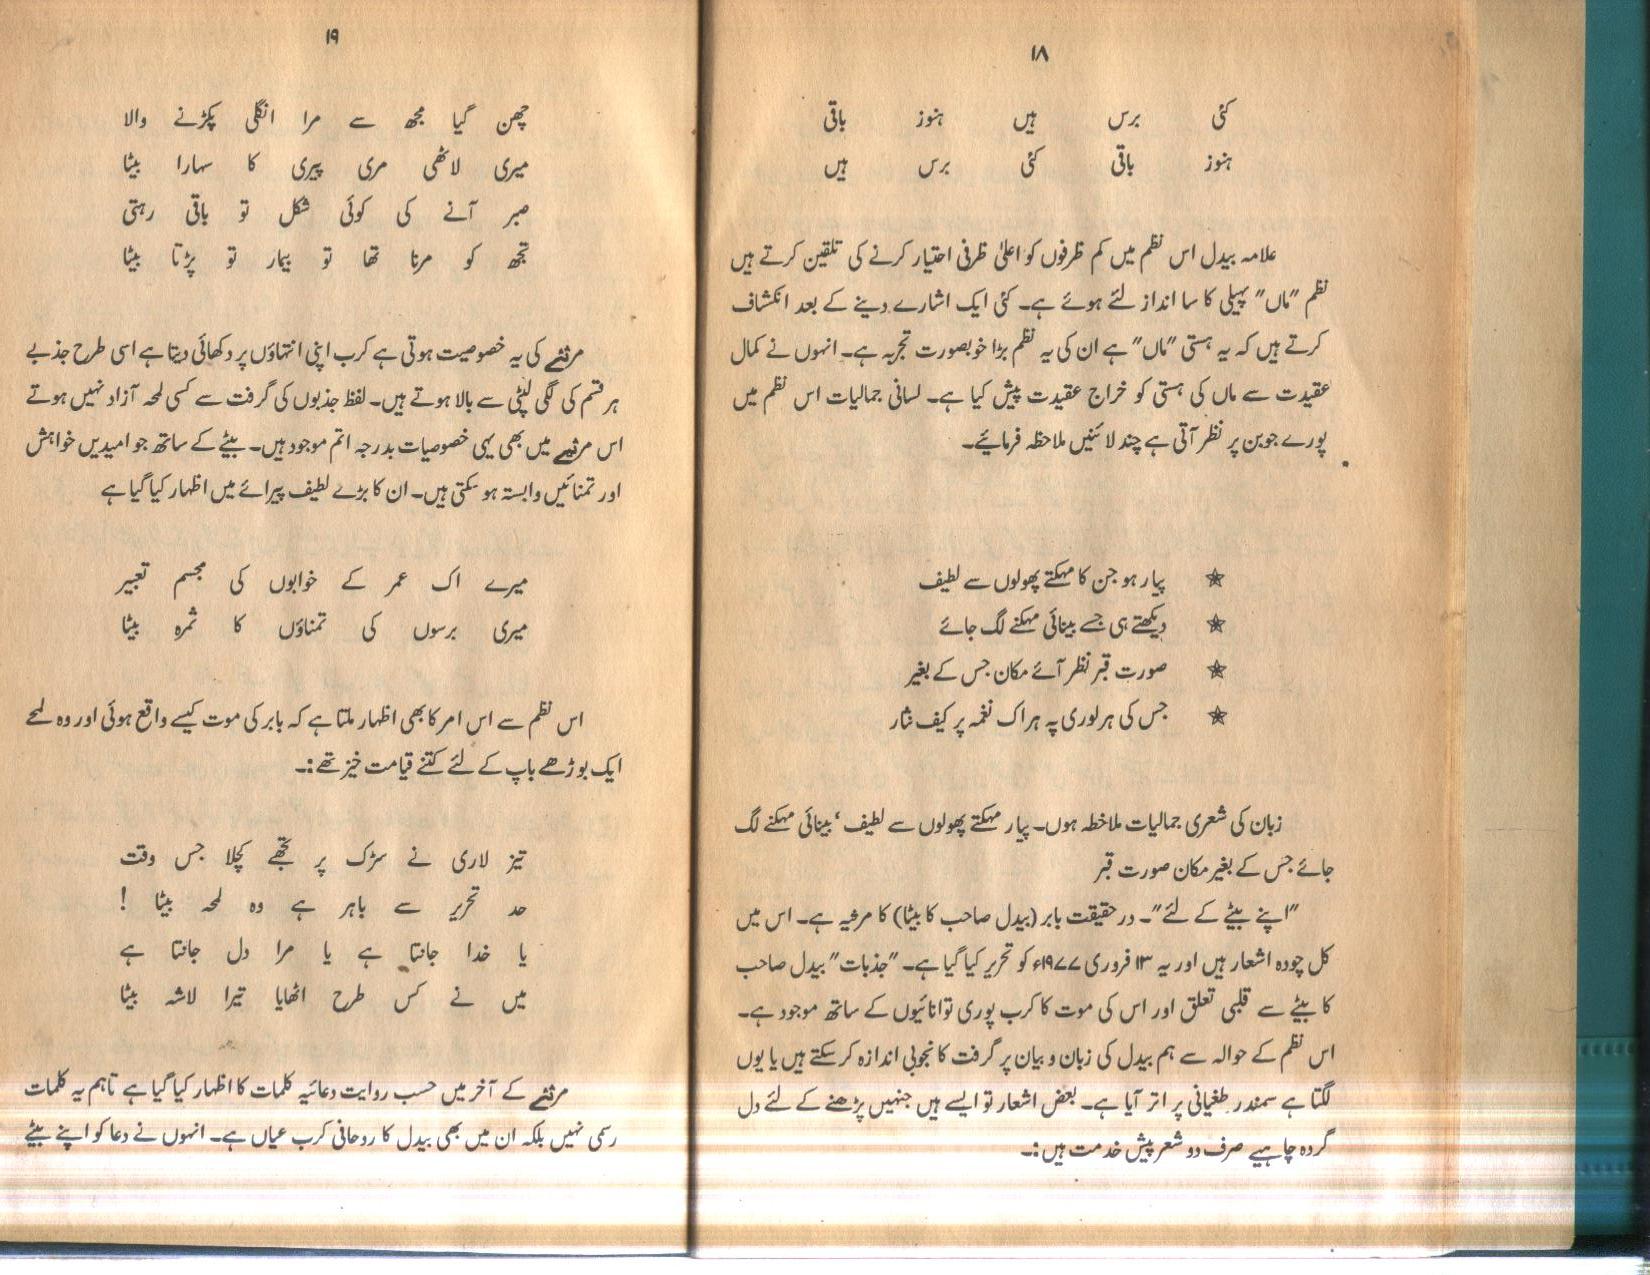 ۱۸
کئی برس ہیں ہنوز باقی
ہنوز باقی کئی برس ہیں
علامہ بیدل اس نظم میں کم ظرفوں کو اعلیٰ ظرفی اختیار کرنے کی تلقین کرتے ہیں
نظم ”ماں“ پہیلی کا سا انداز لئے ہوئے ہے۔ کئی ایک اشارے دینے کے بعد انکشاف
کرتے ہیں کہ یہ ہستی ”ماں“ ہے ان کی یہ نظم بڑا خوبصورت تجربہ ہے۔ انہوں نے کمال
عقیدت سے ماں کی ہستی کو خراج عقیدت پیش کیا ہے۔ لسانی جمالیات اس نظم میں
پورے جوبن پر نظر آتی ہے چند لائنیں ملاحظہ فرمائیے۔
☆ پیار ہو جن کا مہکتے پھولوں سے لطیف
☆ دیکھتے ہی جسے بینائی مہکنے لگ جائے
☆ صورت قبر نظر آئے مکان جس کے بغیر
☆ جس کی ہر لوری پہ ہر اک نغمہ پر کیف نثار
زبان کی شعری جمالیات ملاحظہ ہوں۔ پیار مہکتے پھولوں سے لطیف ‘ بینائی مہکنے لگ
جائے جس کے بغیر مکان صورت قبر
”اپنے بیٹے کے لئے“۔ در حقیقت بابر (بیدل صاحب کا بیٹا) کا مرثیہ ہے۔ اس میں
کل چودہ اشعار ہیں اور یہ ۱۳ فروری ۱۹۷۷ء کو تحریر کیا گیا ہے۔ ”جذبات“ بیدل صاحب
کا بیٹے سے قلبی تعلق اور اس کی موت کا کرب پوری توانائیوں کے ساتھ موجود ہے۔
اس نظم کے حوالہ سے ہم بیدل کی زبان و بیان پر گرفت کا بخوبی اندازہ کر سکتے ہیں یا یوں
لگتا ہے سمندر طغیانی پر اتر آیا ہے۔ بعض اشعار تو ایسے ہیں جنہیں پڑھنے کے لئے دل
گردہ چاہیے صرف دو شعر پیش خدمت ہیں:۔
۱۹
چھن گیا مجھ سے مرا انگلی پکڑنے والا
میری لاٹھی مری پیری کا سہارا بیٹا
صبر آنے کی کوئی شکل تو باقی رہتی
تجھ کو مرنا تھا تو بیمار تو پڑتا بیٹا
مرثئے کی یہ خصوصیت ہوتی ہے کرب اپنی انتہاؤں پر دکھائی دیتا ہے اسی طرح جذبے
ہر قسم کی لگی لپٹی سے بالا ہوتے ہیں۔ لفظ جذبوں کی گرفت سے کسی لمحہ آزاد نہیں ہوتے
اس مرثئے میں بھی یہی خصوصیات بدرجہ اتم موجود ہیں۔ بیٹے کے ساتھ جو امیدیں خواہش
اور تمنائیں وابستہ ہو سکتی ہیں۔ ان کا بڑے لطیف پیرائے میں اظہار کیا گیا ہے
میرے اک عمر کے خوابوں کی مجسم تعبیر
میری برسوں کی تمناؤں کا ثمرہ بیٹا
اس نظم سے اس امر کا بھی اظہار ملتا ہے کہ بابر کی موت کیسے واقع ہوئی اور وہ لمحے
ایک بوڑھے باپ کے لئے کتنے قیامت خیز تھے:۔
تیز لاری نے سڑک پر تجھے کچلا جس وقت
حد تحریر سے باہر ہے وہ لمحہ بیٹا !
یا خدا جانتا ہے یا مرا دل جانتا ہے
میں نے کس طرح اٹھایا تیرا لاشہ بیٹا
مرثئے کے آخر میں حسب روایت دعائیہ کلمات کا اظہار کیا گیا ہے تاہم یہ کلمات
رسمی نہیں بلکہ ان میں بھی بیدل کا روحانی کرب عیاں ہے۔ انہوں نے دعا کو اپنے بیٹے